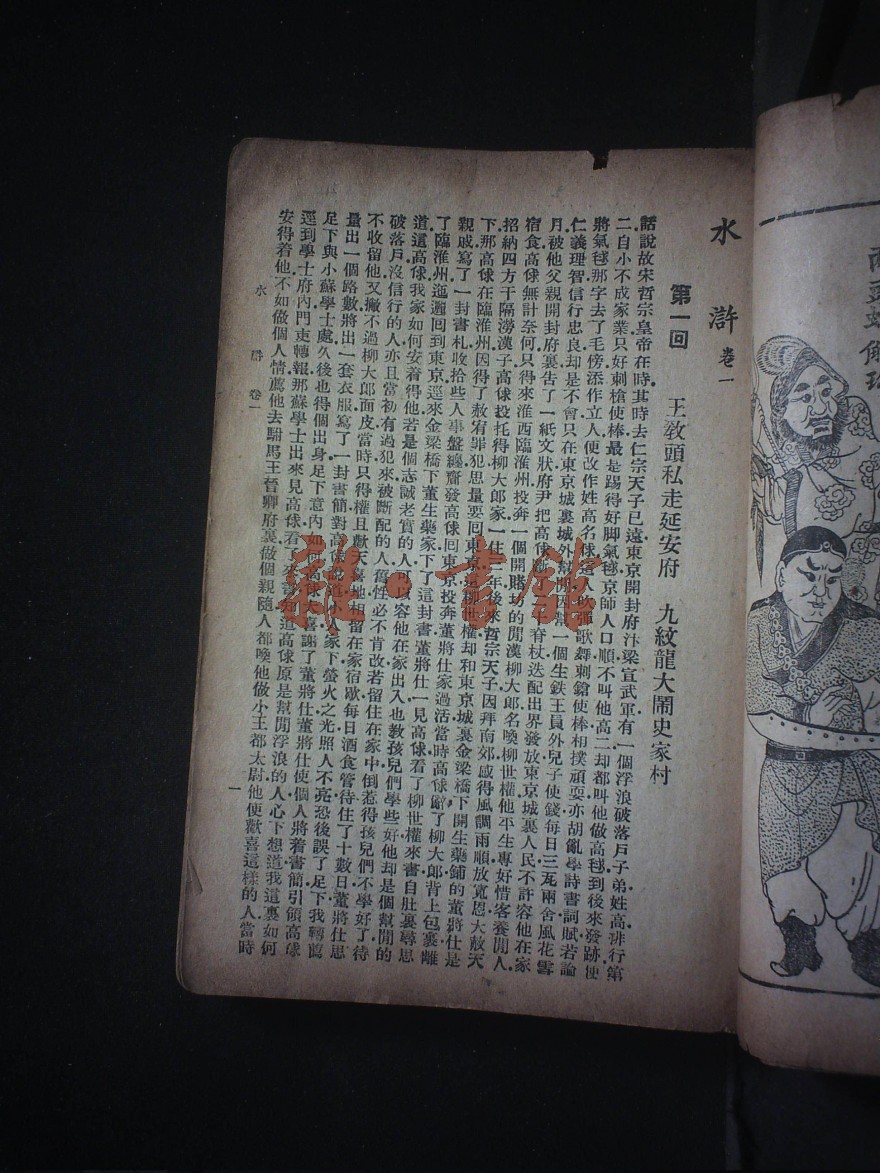 兩頭蛇解珍
水滸 卷一
第一回 王教頭私走延安府 九紋龍大鬧史家村
話說故宋哲宗皇帝在時其時去仁宗天子已遠東京開封府汴梁宣武軍有一個浮浪破落戶子弟姓高排行第
二自小不成家業只好刺槍使棒最是踢得好脚氣毬京師人口順不叫他高二却都叫他做高毬到後來發跡便
將氣毬那字去了毛傍添作立人便改作姓高名俅這人吹彈歌舞刺鎗使棒相撲頑耍亦胡亂學詩書詞賦若論
仁義理智信行忠良却是不會只在東京城裏城外幫閒因幫一個生鉄王員外兒子使錢每日三瓦兩舍風花雪
月被他父親開封府裏告了一紙文狀府尹把高俅斷了二十脊杖迭配出界發放東京城裏人民不許容他在家
宿食高俅無計奈何只得來淮西臨淮州投奔一個開賭坊的閒漢柳大郎名喚柳世權他平生專好惜客養閒人
招納四方干隔澇漢子高俅投托得柳大郎家一住三年後來哲宗天子因拜南郊感得風調雨順放寬恩大赦天
下那高俅在臨淮州因得了赦宥罪犯思量要囘東京這柳世權却和東京城裏金梁橋下開生藥鋪的董將仕是
親戚寫了一封書札收拾些人事盤纏齎發高俅囘東京投奔董將仕家過活當時高俅辭了柳大郎背上包裹離
了臨淮州迤邐囘到東京逕來金梁橋下董生藥家下了這封書董將仕一見高俅看了柳世權來書自肚裏尋思
道這高俅我家如何安着得他若是個志誠老實的人可以容他在家出入也教孩兒們學些好他却是個幫閒的
破落戶沒信行的人亦且當初有過犯來被斷配的人舊性必不肯改若留住在家中倒惹得孩兒們不學好了待
不收留他又撇不過柳大郎面皮當時只得權且歡天喜地相留在家宿歇每日酒食管待住了十數日董將仕思
量出一個路數將出一套衣服寫了一封書簡對高俅說道小人家下螢火之光照人不亮恐後誤了足下我轉薦
足下與小蘇學士處久後也得個出身足下意內如何高俅大喜謝了董將仕董將仕使個人將着書簡引領高俅
逕到學士府內門吏轉報那蘇學士出來見高俅看了來書知道高俅原是幫閒浮浪的人心下想道我這裏如何
安得着他不如做個人情薦他去駙馬王晉卿府裏做個親隨人都喚他做小王都太尉他便歡喜這樣的人當時
水滸 卷一 一
雜·書館